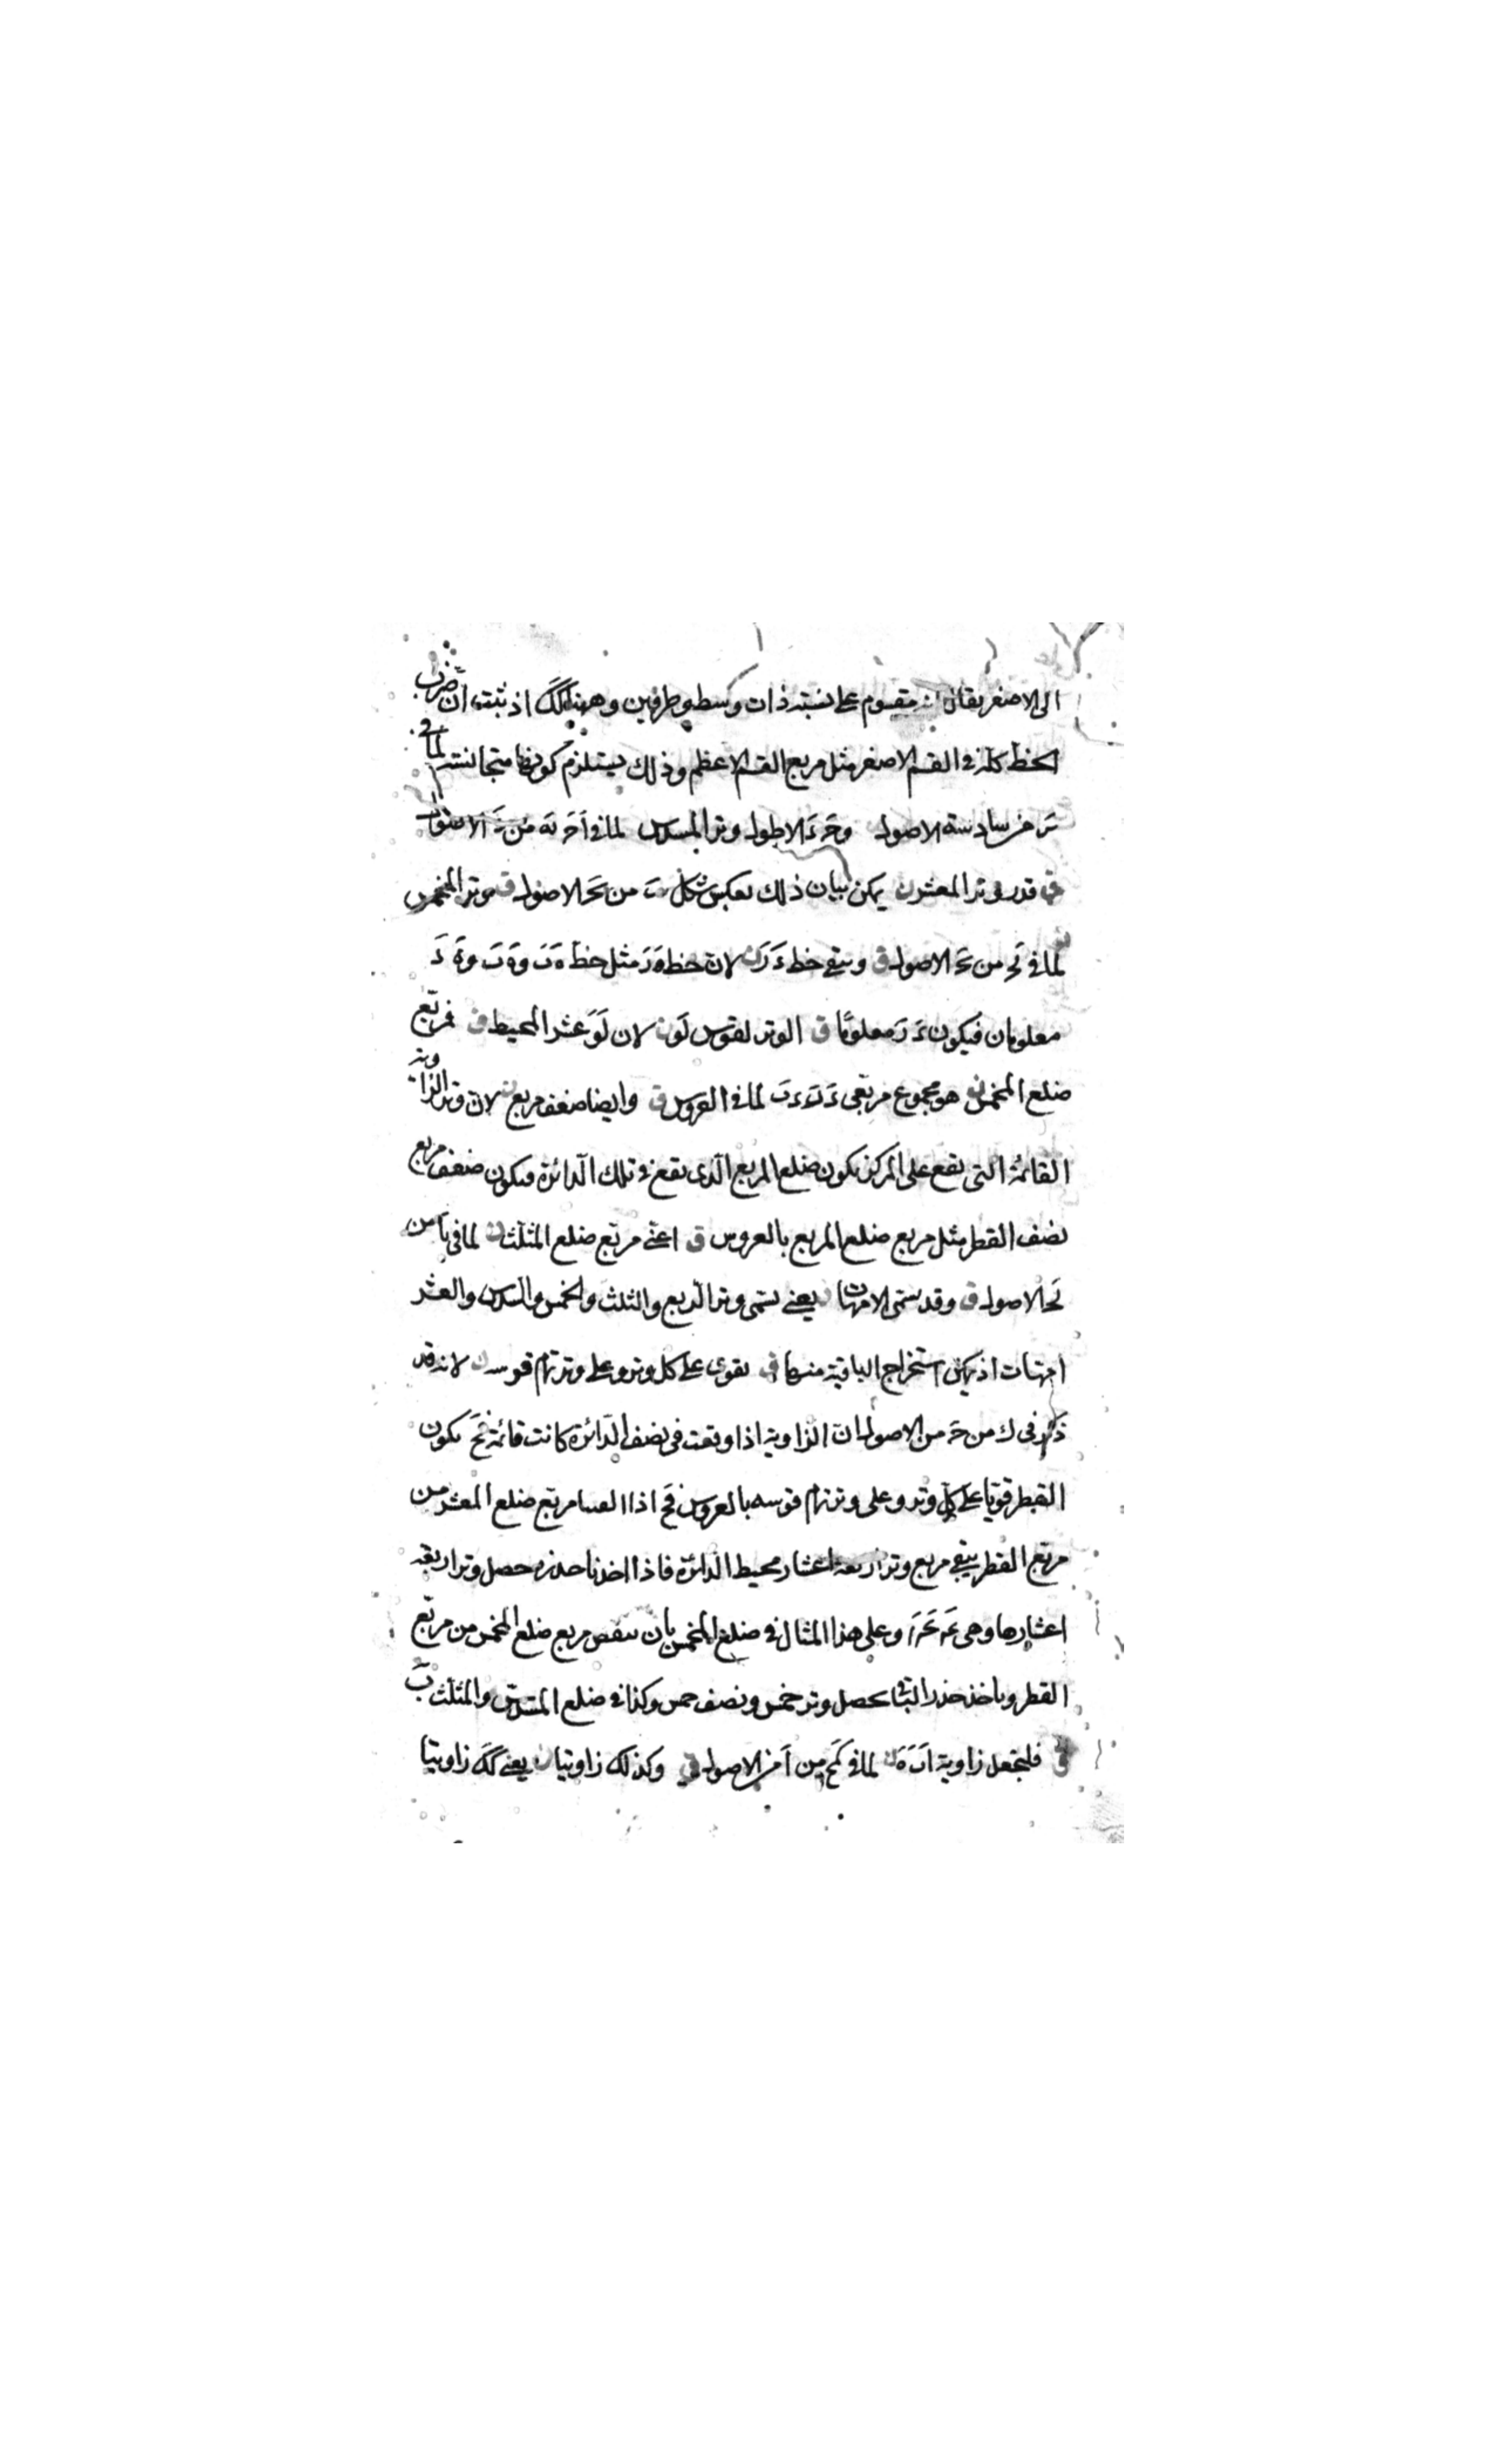 الى الاصغر يقال انه مقسوم على نسبة ذات وسط وطرفين وههنا كك اذ نثبته ان ضرب
الخط كله فى القسم الاصغر مثل مربع القسم الاعظم وذلك يستلزم كونها متجانسة لما فى
من سادسة الاصول وحَ ءَ الاطول وتر المسدس لما فى اخر يَه من دَ الاصول
ق قدر وتر المعشر ن يمكن بيان ذلك بعكس شكل من يَح الاصول ق وتر المخمس
لما فى من يَح الاصول ق ويبقى خط ءَ رَ ن لان خط هَ رَ مثل خط هَ بَ وهَ بَ وهَ دَ
معلومان فيكون ءَ رَ معلومًا ق الوتر لقوس لَو ن لان لَوَ عشر المحيط ق فمربّع
ضلع المخمس ن هو مجموع مربّعى ءَ بَ لما فى العروس ق وايضا ضعف مربع ن لان وتر الزاوية
القائمة التى تقع على المركز يكون ضلع المربع الّذى يقع فى تلك الدّائرة فيكون ضعف مربع
نصف القطر مثل مربع ضلع المربع بالعروس ق اعنى مربّع ضلع المثلّث ن لما فى يَا من
يَح الاصول ق وقد يسمى الامهات ن يعنى يسمى وتر الرّبع والثلث والخمس والسّدس والعشر
امّهات اذ يمكن استخراج الباقية منها ق يقوى على كل وتر وعلى وتر تمام قوسه ن لانه قد
ذكر فى ك من حَ من الاصول انّ الزاوية اذا وقعت فى نصف الدّائرة كانت قائمة فح يكون
القطر قويًا على كل وتر وعلى وتر تمام قوسه بالعروس فح اذا القينا مربّع ضلع المعشر من
مربّع القطر يبقى مربع وتر اربعة اعشار محيط الدائرة فاذا اخذنا جذره حصل وتر اربعة
اعشارها وهى وعلى هذا المثال فى ضلع المخمس بان ننقص مربع ضلع المخمس من مربّع
القطر وناخذ جذر الباقى يحصل وتر خمس ونصف خمس وكذا فى ضلع المسدّس والمثلّث بَ
ق فلنجعل زاوية اَ بَ هَ ن لما فى كَح من اَ من الاصول ق وكذلك زاويتا ن يعنى كك زاويتا